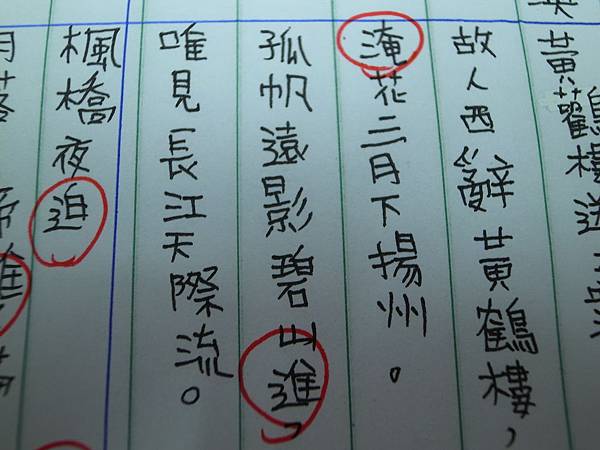 黃鶴樓送孟浩
故人西辭黃鶴樓，
淹花三月下揚州。
孤帆遠影碧山進，
唯見長江天際流。
楓橋夜迫
月落